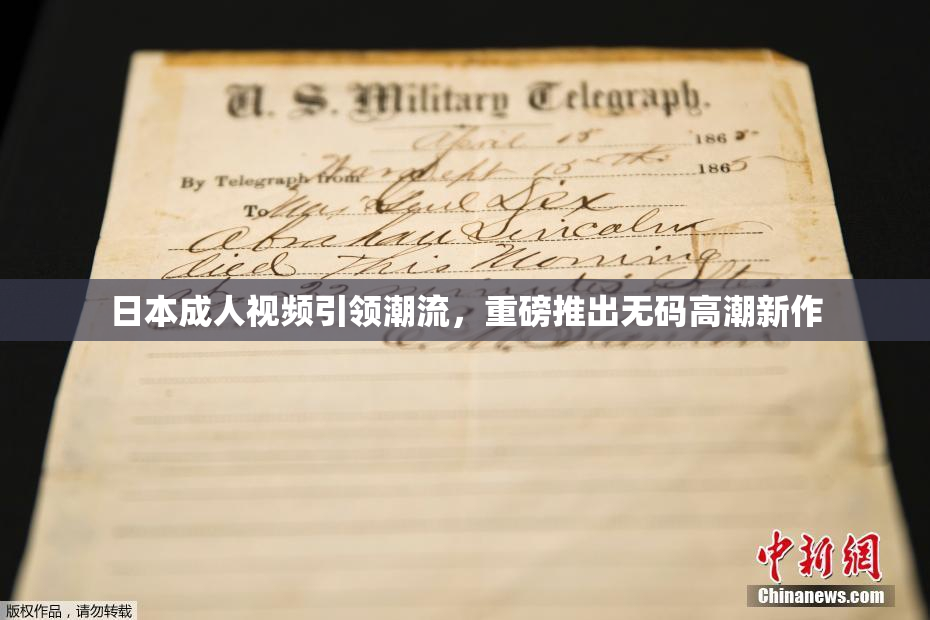 U. S. Military Telegraph.
April 15 1865
By Telegraph from War Dept 15th 1865
To Maj Genl Dix
Abraham Lincoln
died This Morning
at 22 minutes after
E. M. Stanton
日本成人视频引领潮流，重磅推出无码高潮新作
中新網
Chinanews.com
版权作品，请勿转载